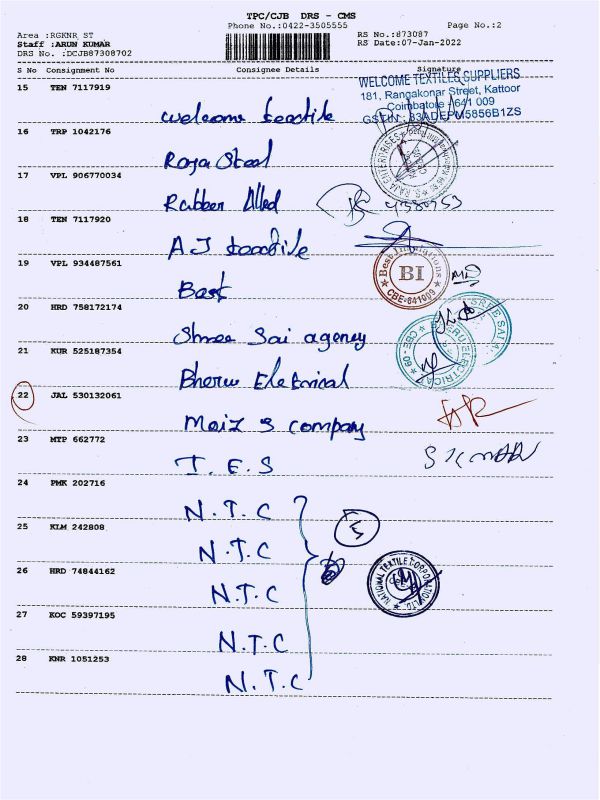 TPC/CJB DRS - CMS
Phone No.:0422-3505555 Page No.:2
Area :RGKNR_ST RS No.:873087
Staff :ARUN KUMAR RS Date:07-Jan-2022
DRS No. :DCJB87308702
S No Consignment No Consignee Details Signature
15 TEN 7117919
WELCOME TEXTILES SUPPLIERS
181, Rangakonar Street, Kattoor
Coimbatore 641 009
GSTIN: 33ADEPM5856B1ZS
welcome textile
16 TRP 1042176
Raja Steel
RAJA ENTERPRISES
17 VPL 906770034
Rubber Allied
18 TEN 7117920
AJ textile
19 VPL 934487561
Best
Best Insulations
BI
CBE-641009
20 HRD 758172174
Shree Sai agency
SREE SAI
21 KUR 525187354
Bheru Electrical
BHERU ELECTRICAL
CBE - 09
22 JAL 530132061
Moiz S company
23 MTP 662772
T.E.S
24 PMK 202716
N.T.C
5
25 KLM 242808
N.T.C
26 HRD 74844162
N.T.C
NATIONAL TEXTILE CORPORATION LTD.
27 KOC 59397195
N.T.C
28 KNR 1051253
N.T.C